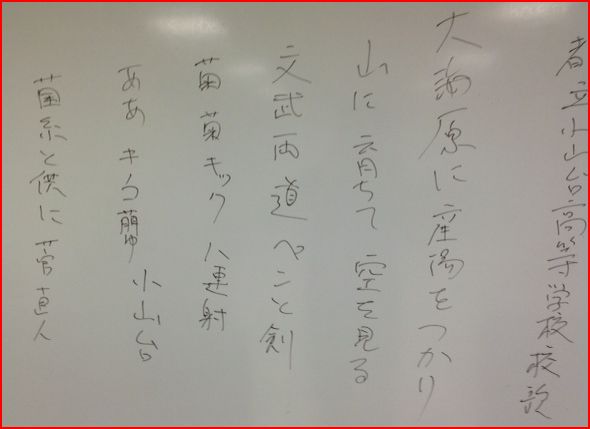 都立小山台高等学校校歌
大海原に産陽をつかり
山に育ちて 空を見る
文武両道 ペンと剣
菌菌キック 八連射
ああ 小山台
菌糸と供に 菅直人